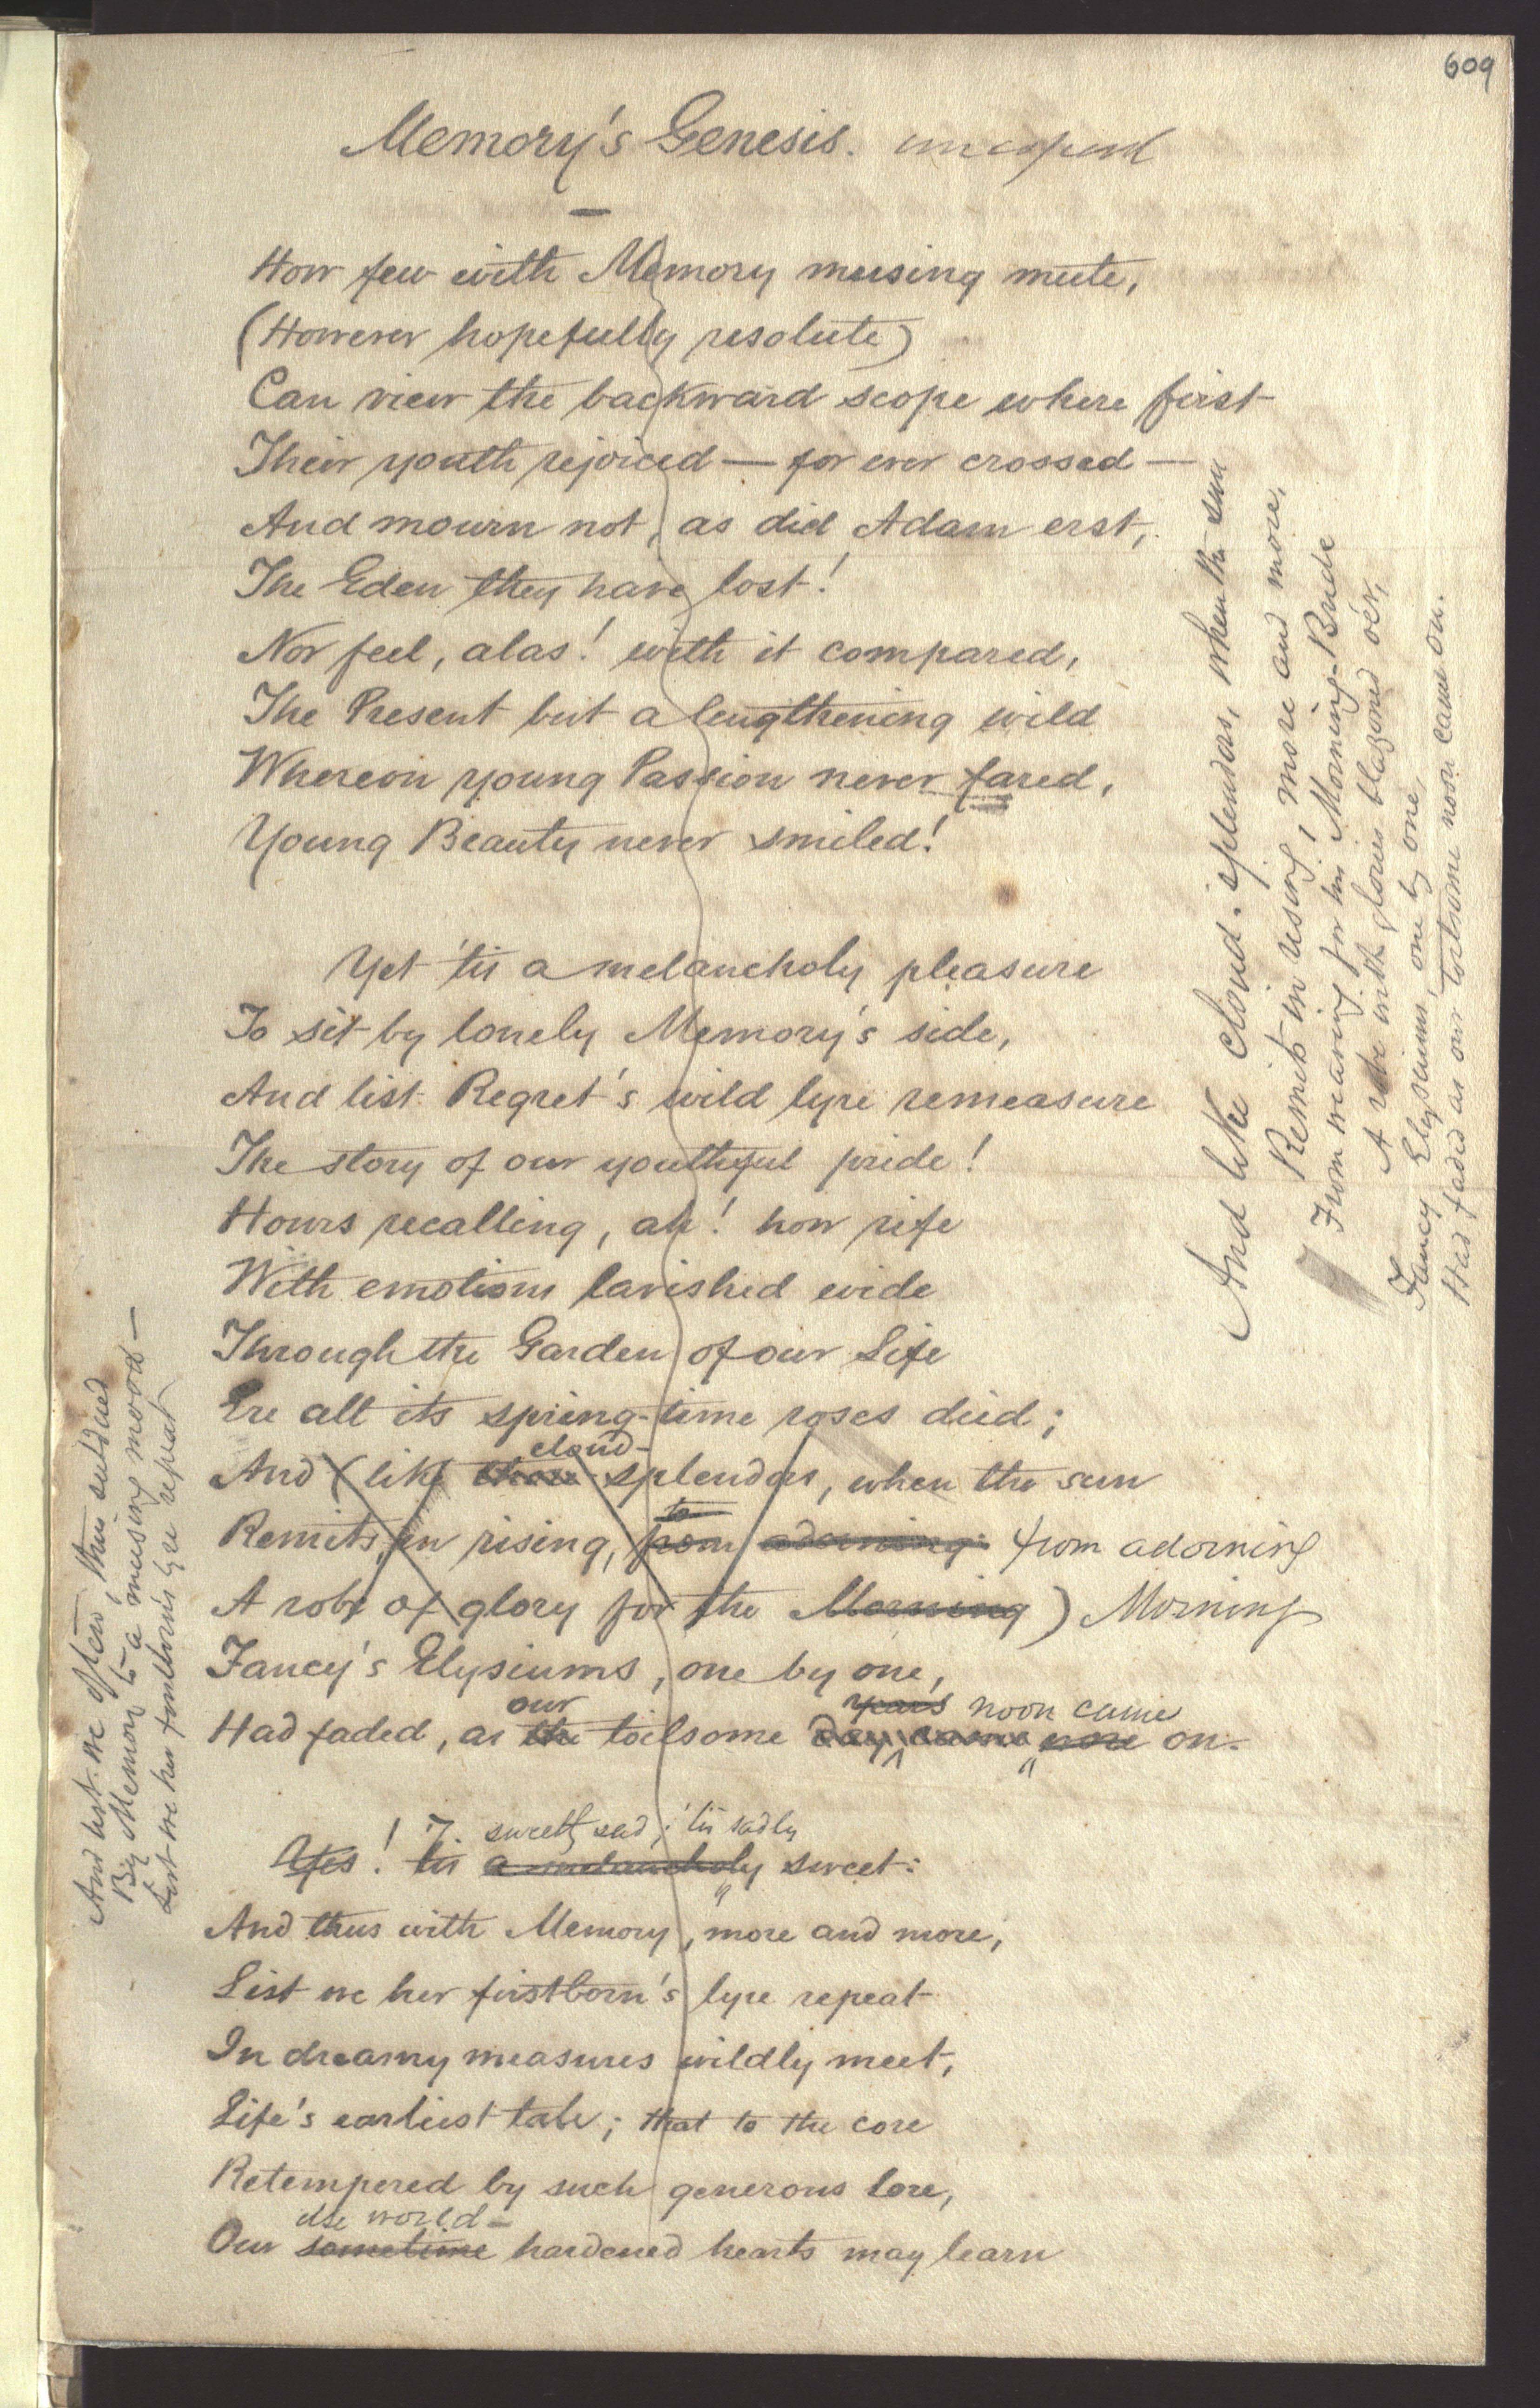 609
Memory's Genesis.
How few with Memory musing mute,
(However hopefully resolute)
Can view the backward scope where first
Their youth rejoiced — for ever crossed —
And mourn not, as did Adam erst,
The Eden they have lost!
Nor feel, alas! with it compared,
The Present but a lengthening wild
Whereon young Passion never fared,
Young Beauty never smiled!
Yet 'tis a melancholy pleasure
To sit by lonely Memory's side,
And list Regret's wild lyre remeasure
The story of our youthful pride!
Hours recalling, ah! how rife
With emotions lavished wide
Through the Garden of our Life
Ere all its spring-time roses died;
cloud-
And (like splendors, when the sun
to
Remits, in rising, from adorning from adorning
A robe of glory for the Morning) Morning
Fancy's Elysiums, one by one,
our years noon came
Had faded, as the toilsome day came more on.
! T. sweetly sad; 'tis sadly
Yes! tis a melancholy sweet:
And thus with Memory, more and more,
List we her firstborn's lyre repeat
In dreamy measures wildly meet,
Life's earliest tale; that to the core
Retempered by such generous lore,
else world-
Our sometime hardened hearts may learn
And like cloud-splendors, when the sun
Remits in rising, more and more,
From wearing for his Morning-Bride
A robe with glories blazoned o'er,
Fancy Elysiums, one by one,
Had faded as our toilsome noon came on.
And list we often, thus subdued
By Memory to a musing mood —
List we her firstborn's lyre repeat